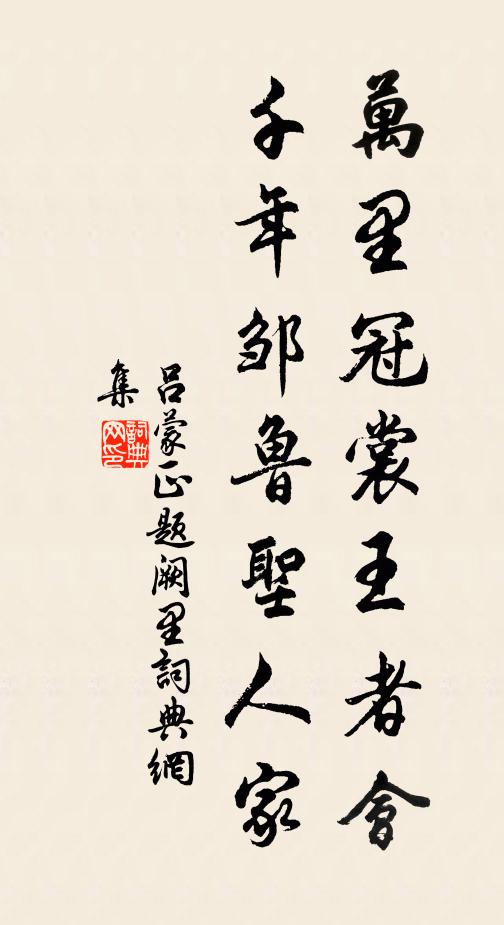 萬里冠裳王者會
千年邹魯聖人家
吕蒙正題阙里詞典網
集
詞典网印